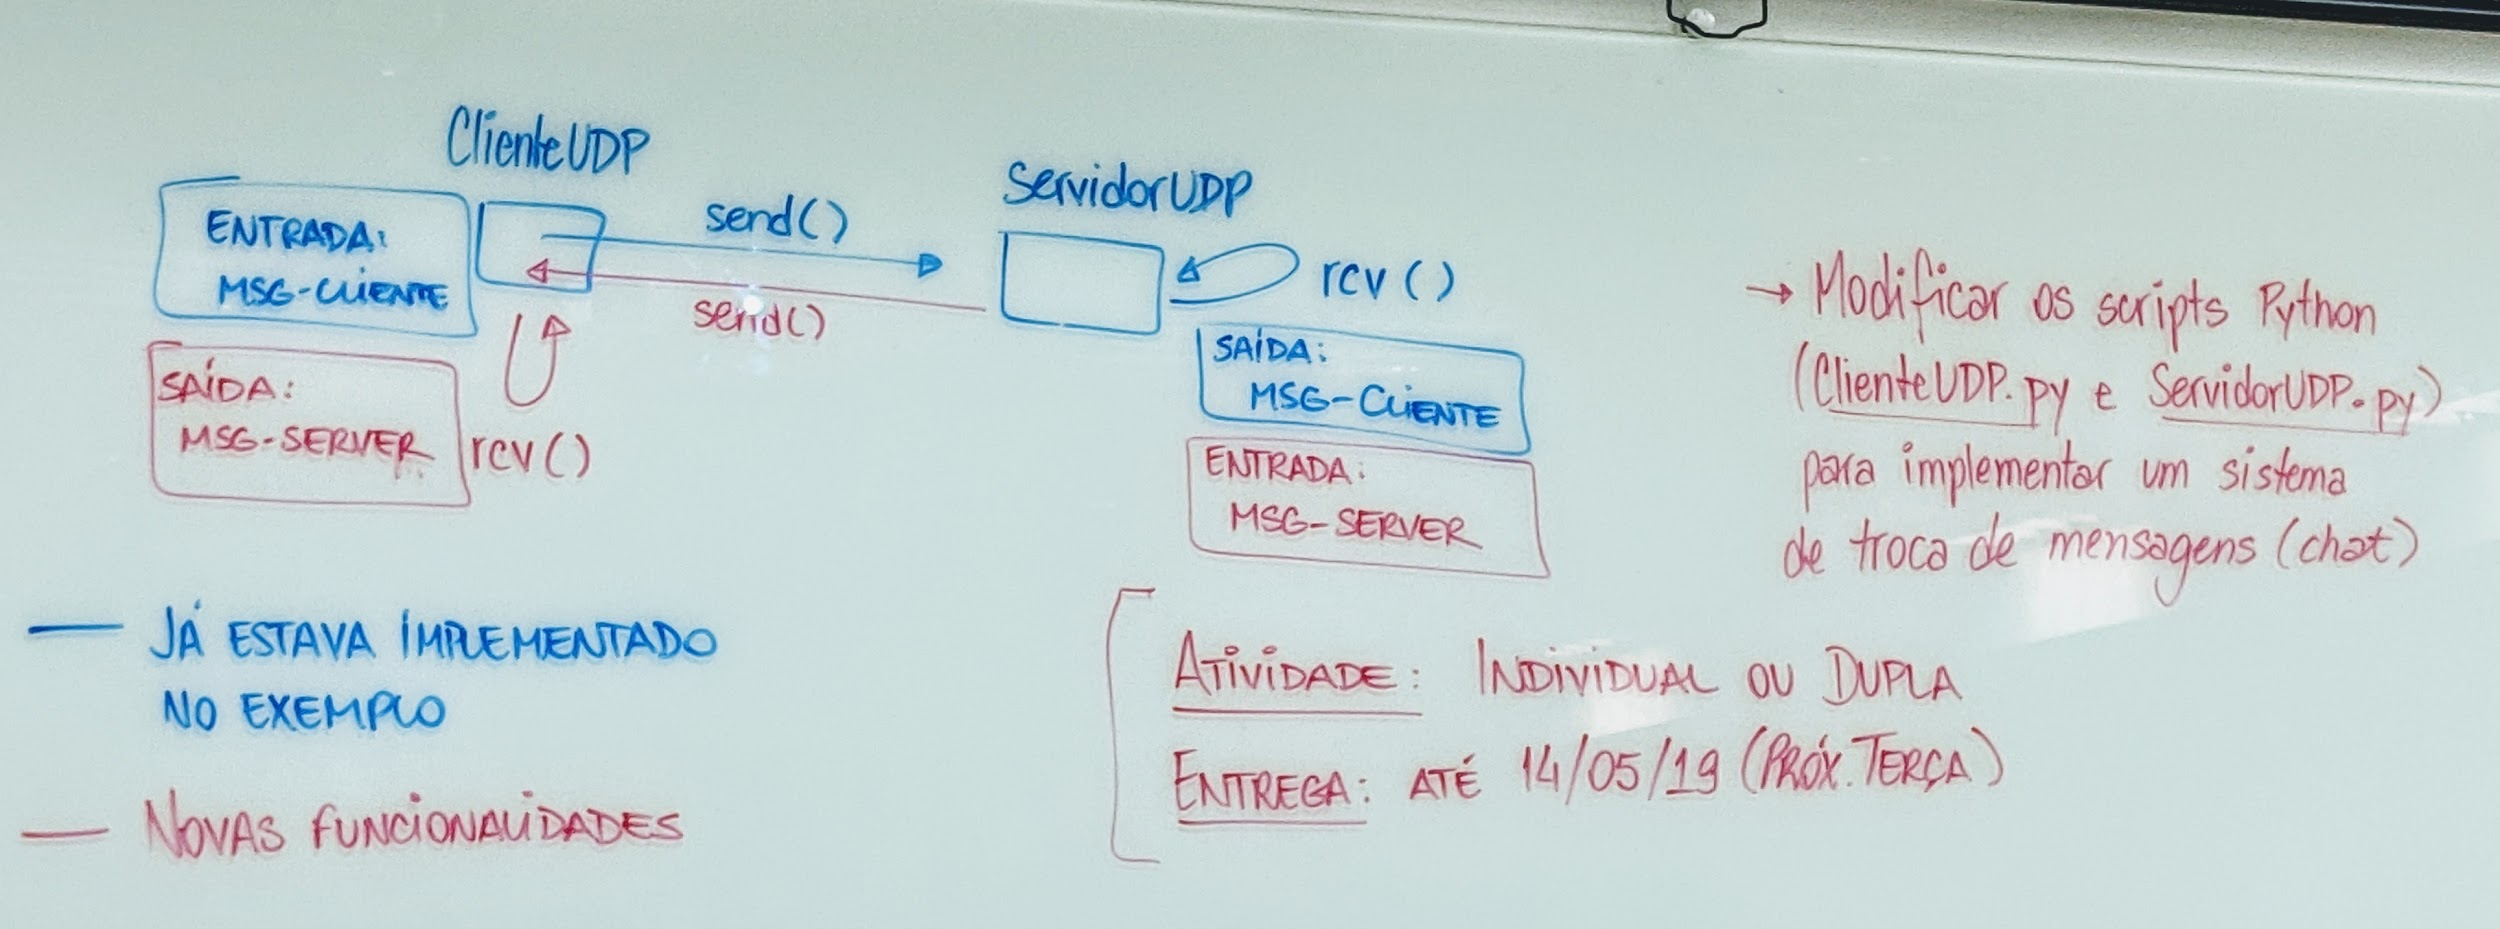 ClienteUDP
ENTRADA:
MSG-CLIENTE
send()
send()
SAÍDA:
MSG-SERVER
rcv()
ServidorUDP
rcv()
SAÍDA:
MSG-CLIENTE
ENTRADA:
MSG-SERVER
→ Modificar os scripts Python
(ClienteUDP.py e ServidorUDP.py)
para implementar um sistema
de troca de mensagens (chat)
— JÁ ESTAVA IMPLEMENTADO
NO EXEMPLO
— NOVAS FUNCIONALIDADES
ATIVIDADE: INDIVIDUAL OU DUPLA
ENTREGA: ATÉ 14/05/19 (PRÓX. TERÇA)